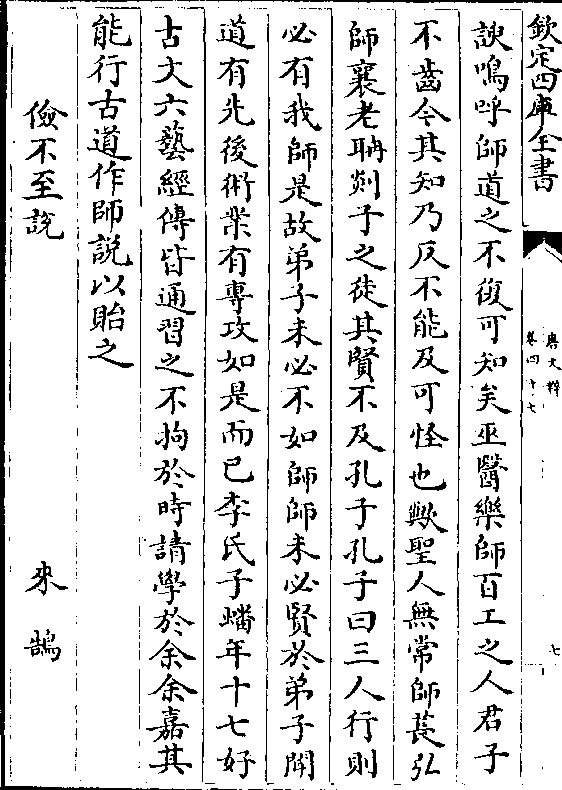 欽定四庫全書
唐文粹
卷四十七
七
諛嗚呼師道之不復可知矣巫醫樂師百工之人君子
不齒今其知乃反不能及可怪也歟聖人無常師萇弘
師襄老聃郯子之徒其賢不及孔子孔子曰三人行則
必有我師是故弟子未必不如師師未必賢於弟子聞
道有先後術業有專攻如是而已李氏子蟠年十七好
古文六藝經傳皆通習之不拘於時請學於余余嘉其
能行古道作師說以貽之
儉不至說 來鵠